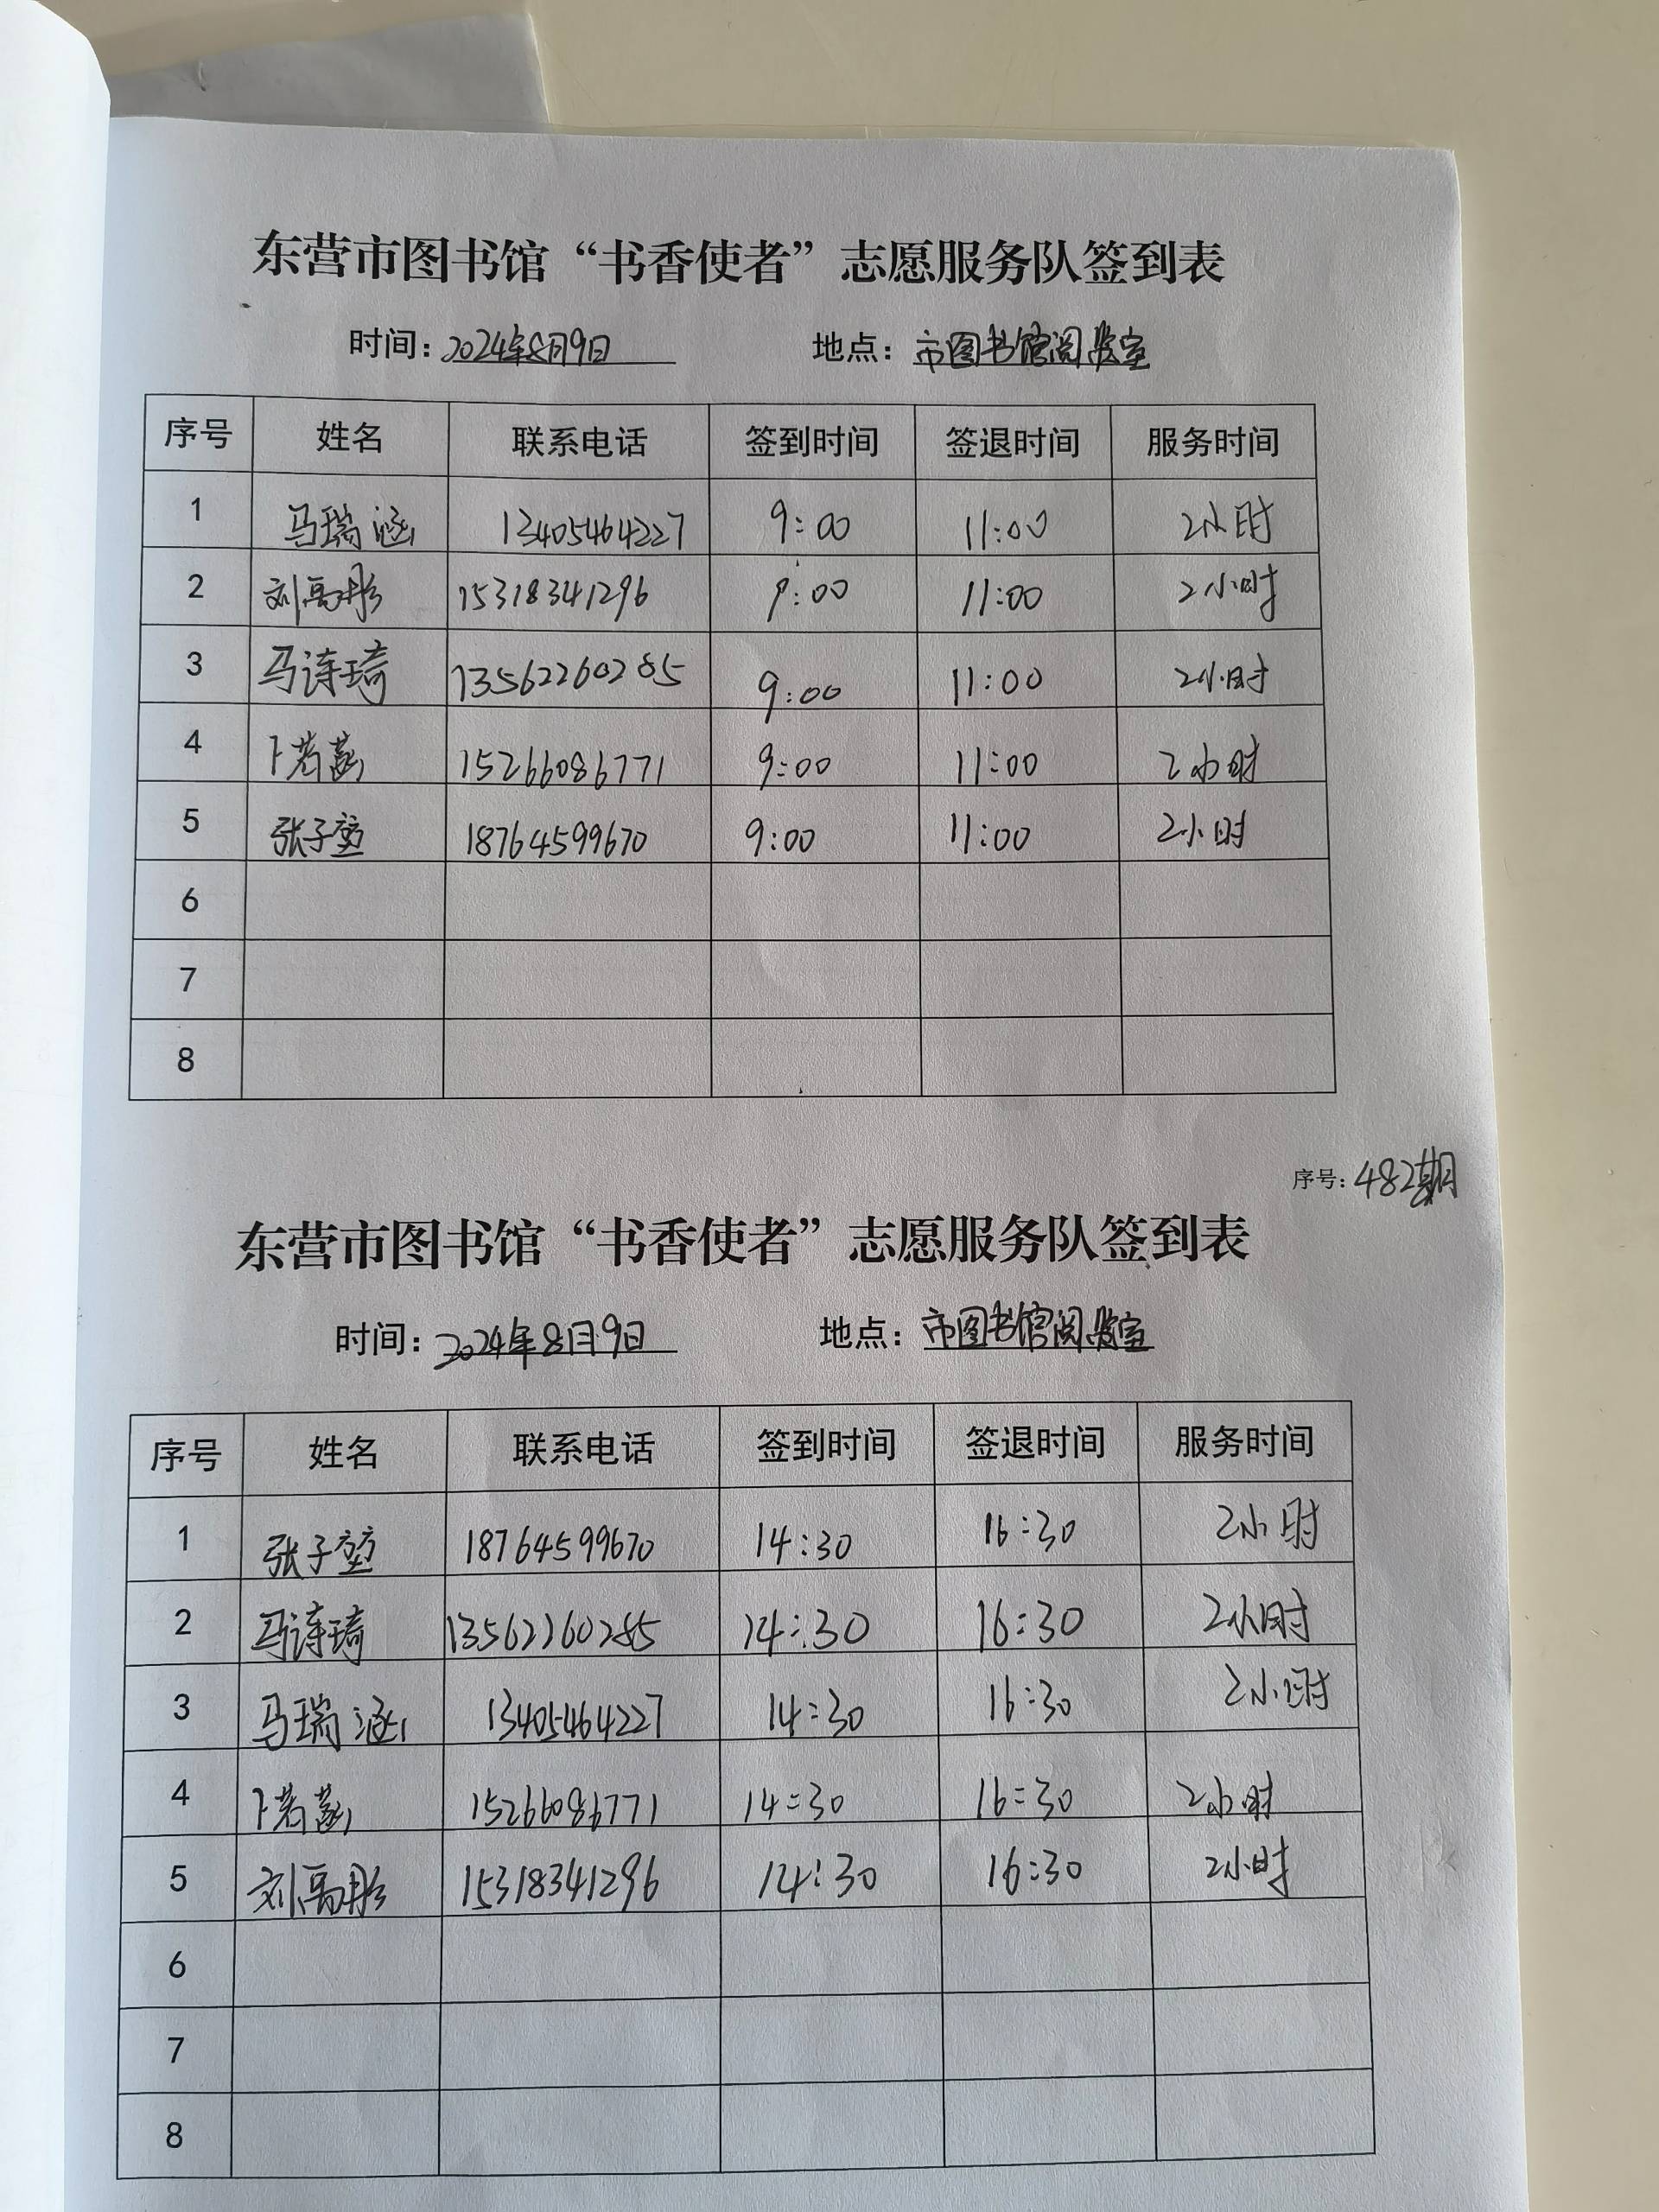 东营市图书馆“书香使者”志愿服务队签到表
时间：2024年8月9日 地点：市图书馆阅览室
序号 姓名 联系电话 签到时间 签退时间 服务时间
1 马瑞涵 13405464227 9:00 11:00 2小时
2 刘禹彤 15318341296 9:00 11:00 2小时
3 马诗琦 13562260285 9:00 11:00 2小时
4 卜若菡 15266086771 9:00 11:00 2小时
5 张子堃 18764599670 9:00 11:00 2小时
6
7
8
序号：482期
东营市图书馆“书香使者”志愿服务队签到表
时间：2024年8月9日 地点：市图书馆阅览室
序号 姓名 联系电话 签到时间 签退时间 服务时间
1 张子堃 18764599670 14:30 16:30 2小时
2 马诗琦 13562260285 14:30 16:30 2小时
3 马瑞涵 13405464227 14:30 16:30 2小时
4 卜若菡 15266086771 14:30 16:30 2小时
5 刘禹彤 15318341296 14:30 16:30 2小时
6
7
8